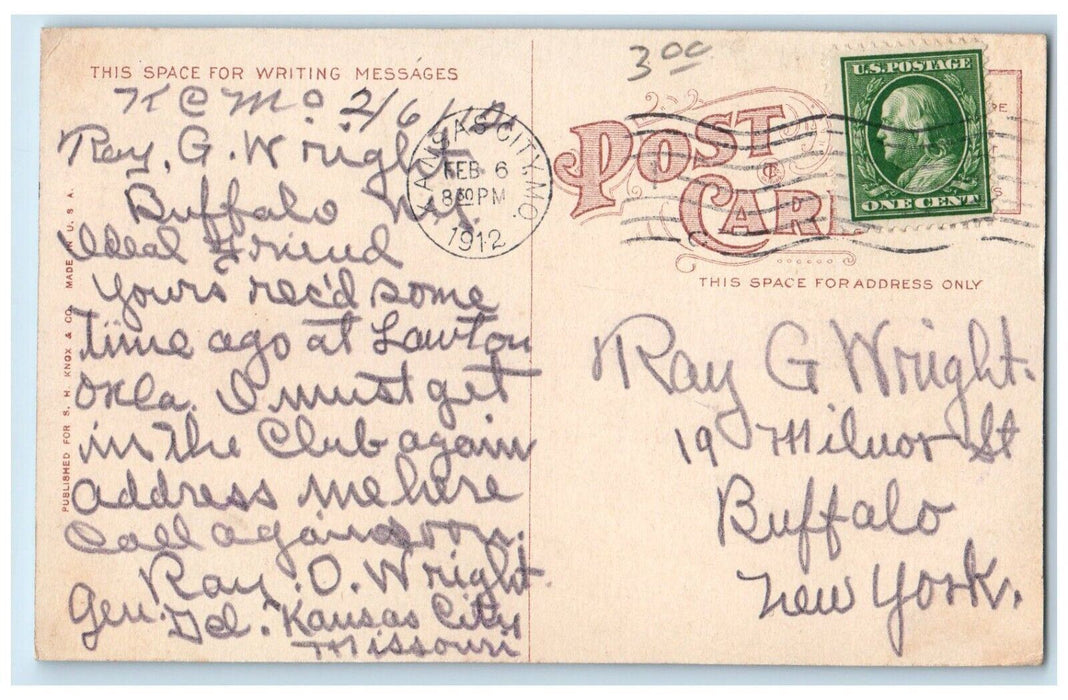 THIS SPACE FOR WRITING MESSAGES
K C Mo 2/6/12
Ray. G. Wright
Buffalo N.Y.
Ideal Friend
Yours rec'd some
time ago at Lawton
Okla. I must get
in the Club again
address me here
Call again soon.
Ray. O. Wright.
Gen. Del. Kansas City
Missouri
PUBLISHED FOR S. H. KNOX & CO. MADE IN U. S. A.
KANSAS CITY, MO.
FEB 6
8 30 PM
1912
3 00
POST CARD
U.S. POSTAGE
ONE CENT
THIS SPACE FOR ADDRESS ONLY
Ray G Wright.
19 Milnor St
Buffalo
New York.